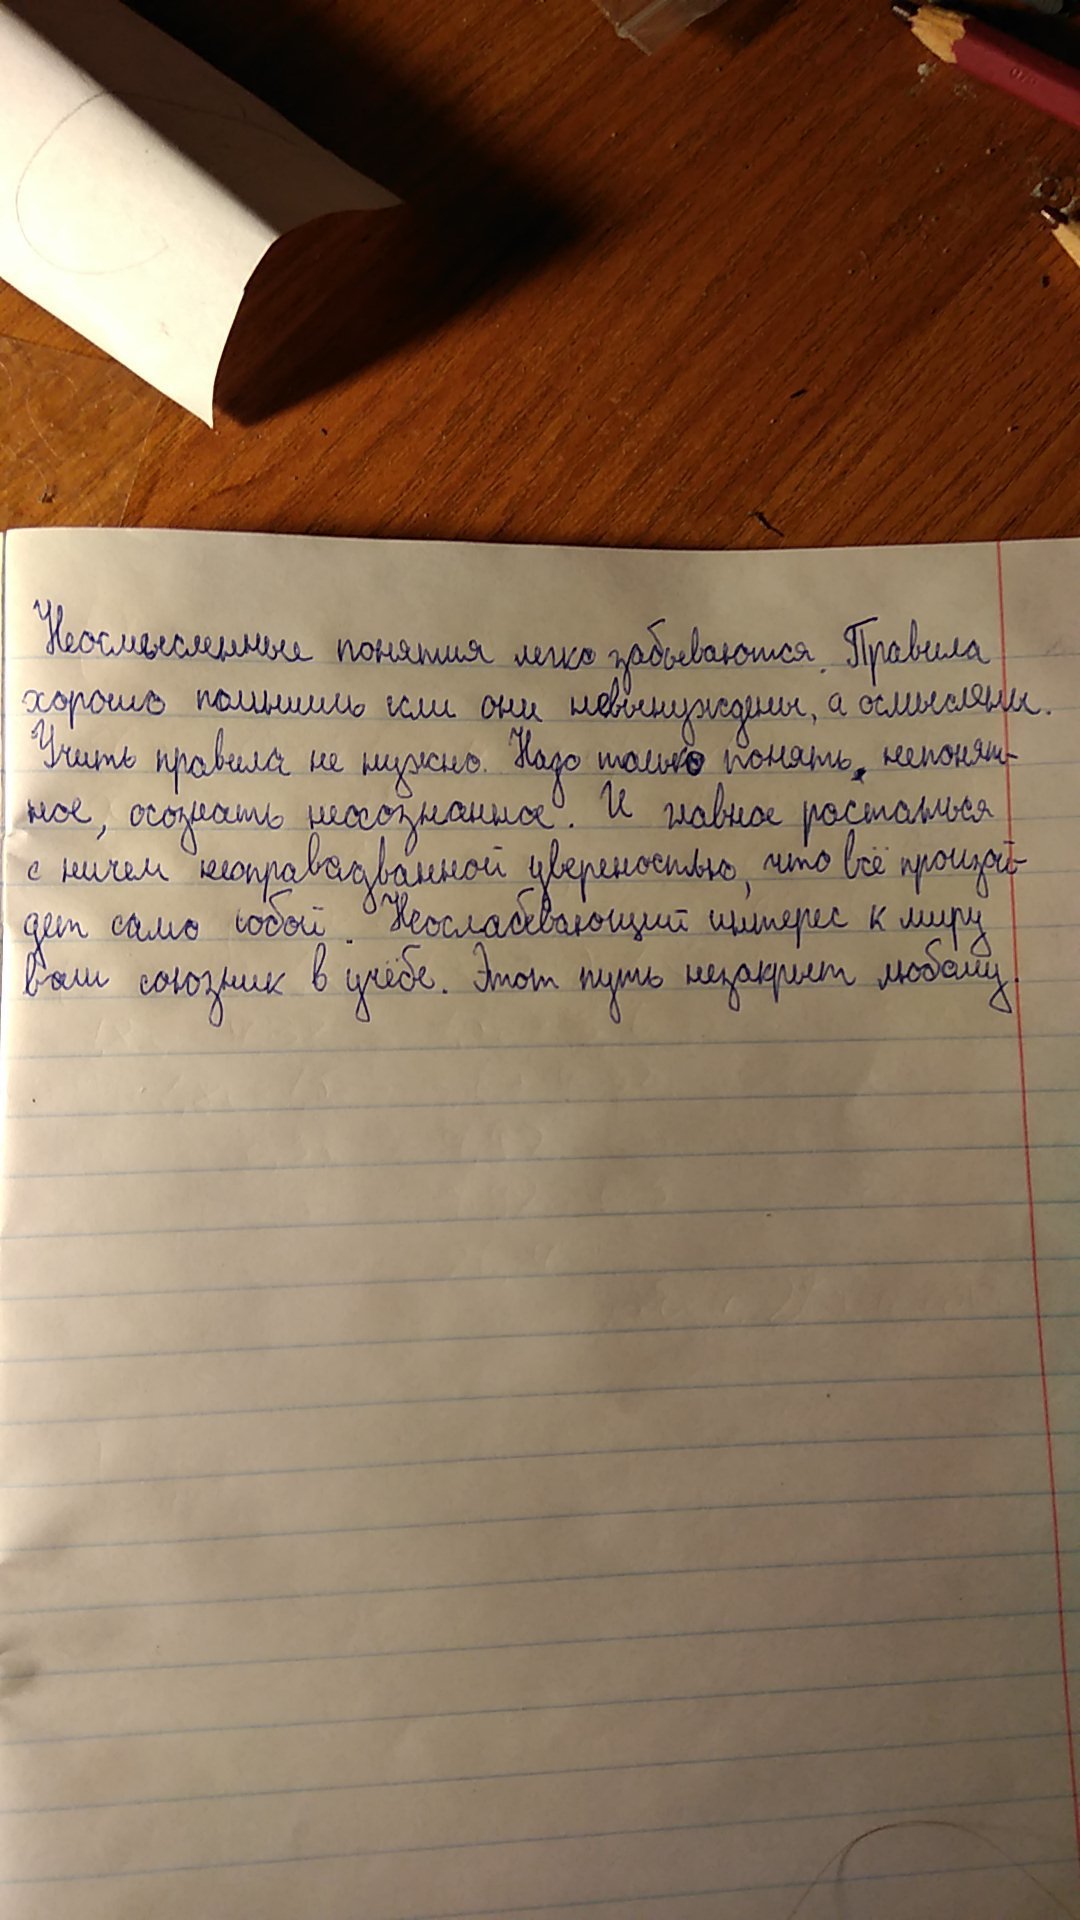 Неосмысленные понятия легко забываются. Правила
хорошо помнишь если они невынуждены, а осмысляны.
Учить правила не нужно. Надо только понять, непонят-
ное, осознать неосознанное. И главное растаться
с ничем неоправадванной увереностью, что всё произой-
дет само собой. Неослабевающий интерес к миру
ваш союзник в учёбе. Этот путь незакрыт любому.